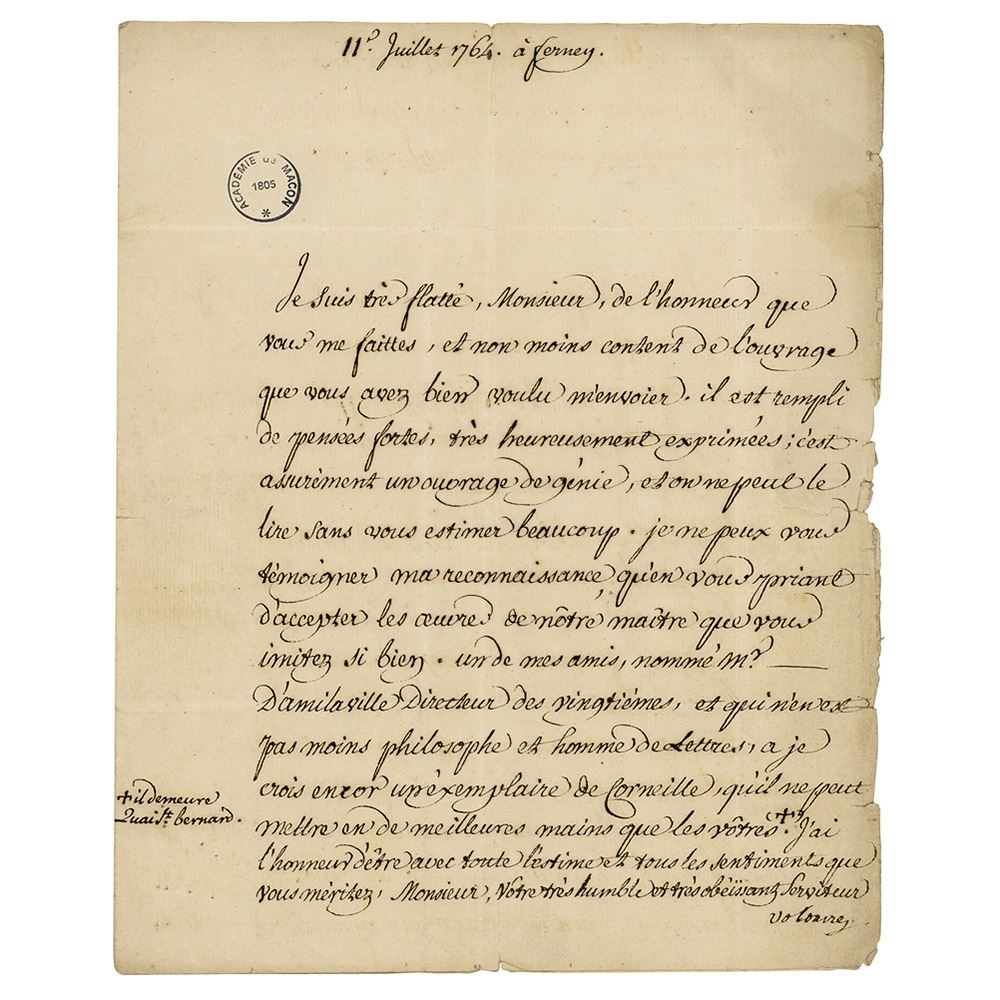 11e. Juillet 1764. à ferney.
ACADÉMIE DE MACON
1805
Je suis très flatté, Monsieur, de l'honneur que
vous me faittes, et non moins content de l'ouvrage
que vous avez bien voulu m'envoier. il est rempli
de pensées fortes, très heureusement exprimées; c'est
assurément un ouvrage de génie, et on ne peut le
lire sans vous estimer beaucoup. je ne peux vous
témoigner ma reconnaissance qu'en vous priant
d'accepter les œuvres de nôtre maître que vous
imitez si bien. un de mes amis, nommé Mr.
D'amilaville Directeur des vingtiémes, et qui n'en est
pas moins philosophe et homme de Lettres, a je
crois encor un éxemplaire de Corneille, qu'il ne peut
+ il demeure
Quai St. bernard.
mettre en de meilleures mains que les vôtres +. J'ai
l'honneur d'être avec toute l'estime et tous les sentiments que
vous méritez, Monsieur, Vôtre très humble et très obéïssant Serviteur
voltaire